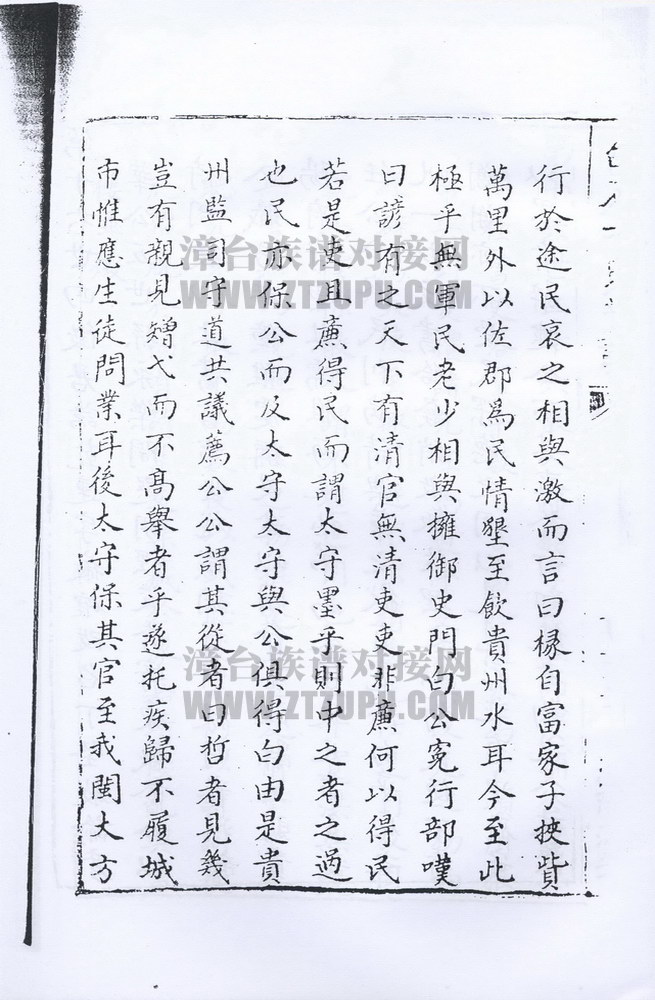 行於途民哀之相與激而言曰椽自富家子挾貲
萬里外以佐郡爲民情墾至飲貴州水耳今至此
極乎無軍民老少相與擁御史門白公寃行部嘆
曰諺有之天下有清官無清吏吏非廉何以得民
若是吏且廉得民而謂太守墨乎則中之者之過
也民亦保公而及太守太守與公俱得白由是貴
州監司守道共議薦公公謂其從者曰哲者見幾
豈有親見矰弋而不高舉者乎遂托疾歸不履城
市惟應生徒問業耳後太守保其官至我閩大方
漳台族谱对接网
WWW.ZTZUPU.COM
漳台族谱对接网
WWW.ZTZUPU.COM